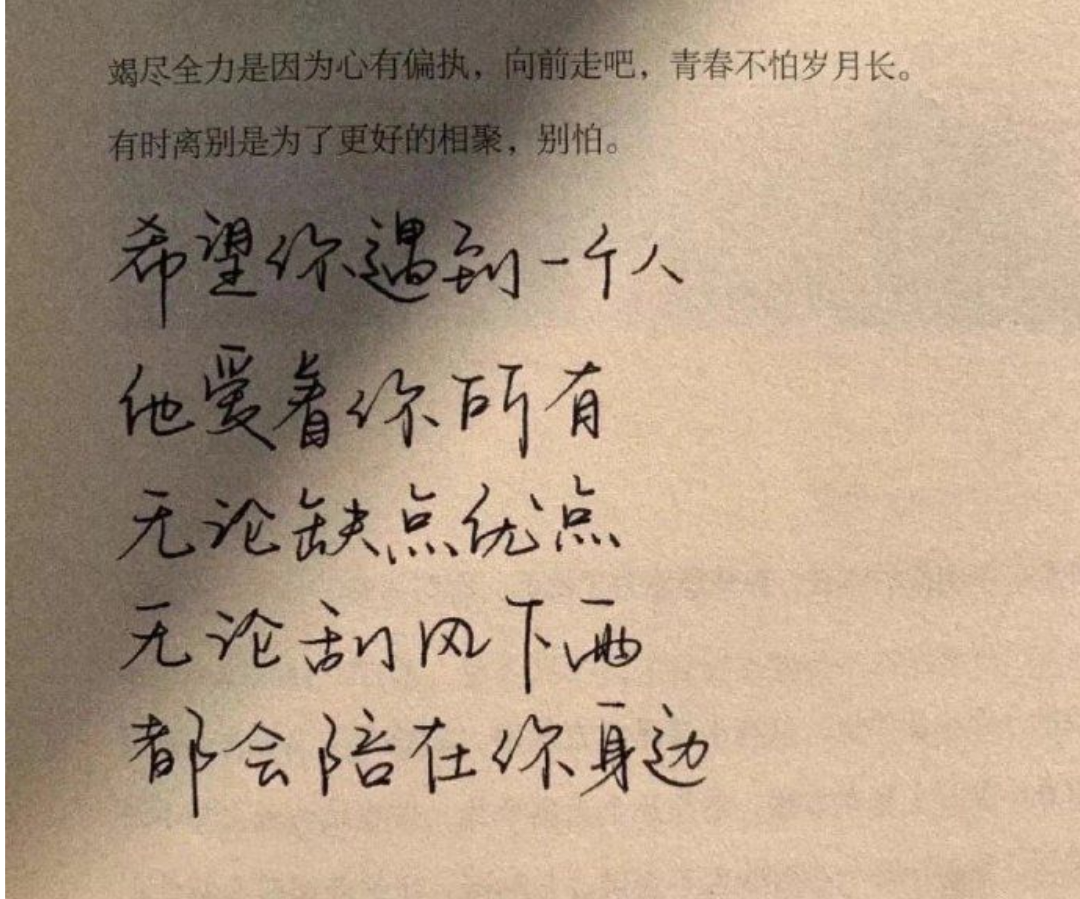 竭尽全力是因为心有偏执，向前走吧，青春不怕岁月长。
有时离别是为了更好的相聚，别怕。
希望你遇到一个人
他爱着你所有
无论缺点优点
无论刮风下雨
都会陪在你身边